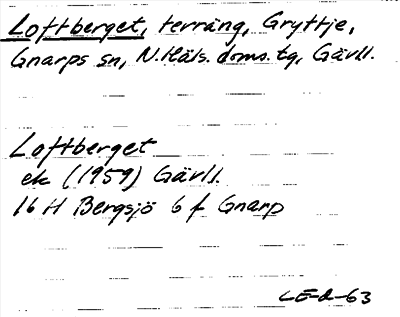 Loftberget, terräng, Gryttje,
Gnarps sn, N. Häls. doms. tg, Gävll.
Loftberget
ek (1959) Gävll.
16 H Bergsjö 6 f Gnarp
LE-d-63